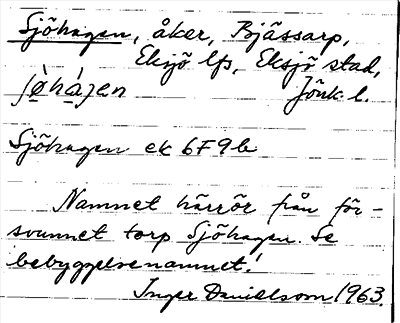 Sjöhagen, åker, Bjässarp,
Eksjö lfs, Eksjö stad,
Jönk l.
Sjöhagen ek 6F9b
Namnet härrör från för-
svunnet torp Sjöhagen. Se
bebyggelsenamnet!
Inger Danielsson 1963.